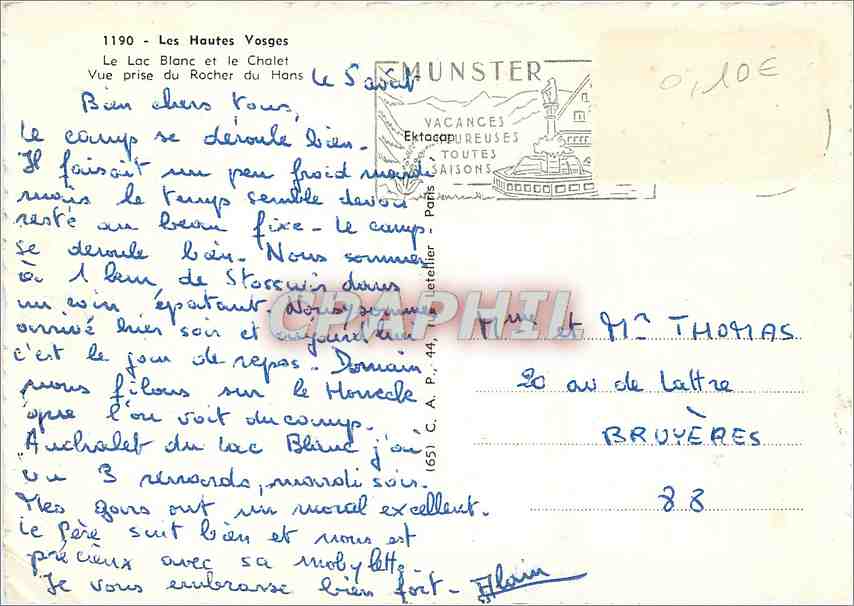 1190 - Les Hautes Vosges
Le Lac Blanc et le Chalet
Vue prise du Rocher du Hans
Le 5 août
Bien chers tous,
Le camp se déroule bien.
Il faisait un peu froid mardi
mais le temps semble devoir
resté au beau fixe. Le camp
se déroule bien. Nous sommes
à 1 km de Stosswir dans
un coin épatant. Nous y sommes
arrivé hier soir et aujourd'hui
c'est le jour de repos. Demain
nous filons sur le Honeck
que l'on voit du camp.
Au chalet du Lac Blanc j'ai
vu 3 renards, mardi soir.
Mes gars ont un moral excellent.
Le Père suit bien et nous est
précieux avec sa mobylette.
Je vous embrasse bien fort - Alain
MUNSTER
VACANCES
UREUSES
TOUTES
SAISONS
Ektacap
0,10€
(65) C. A. P., 44, Letellier - Paris
CPAPHIL
Mme et Mr THOMAS
20 av de Lattre
BRUYÈRES
88